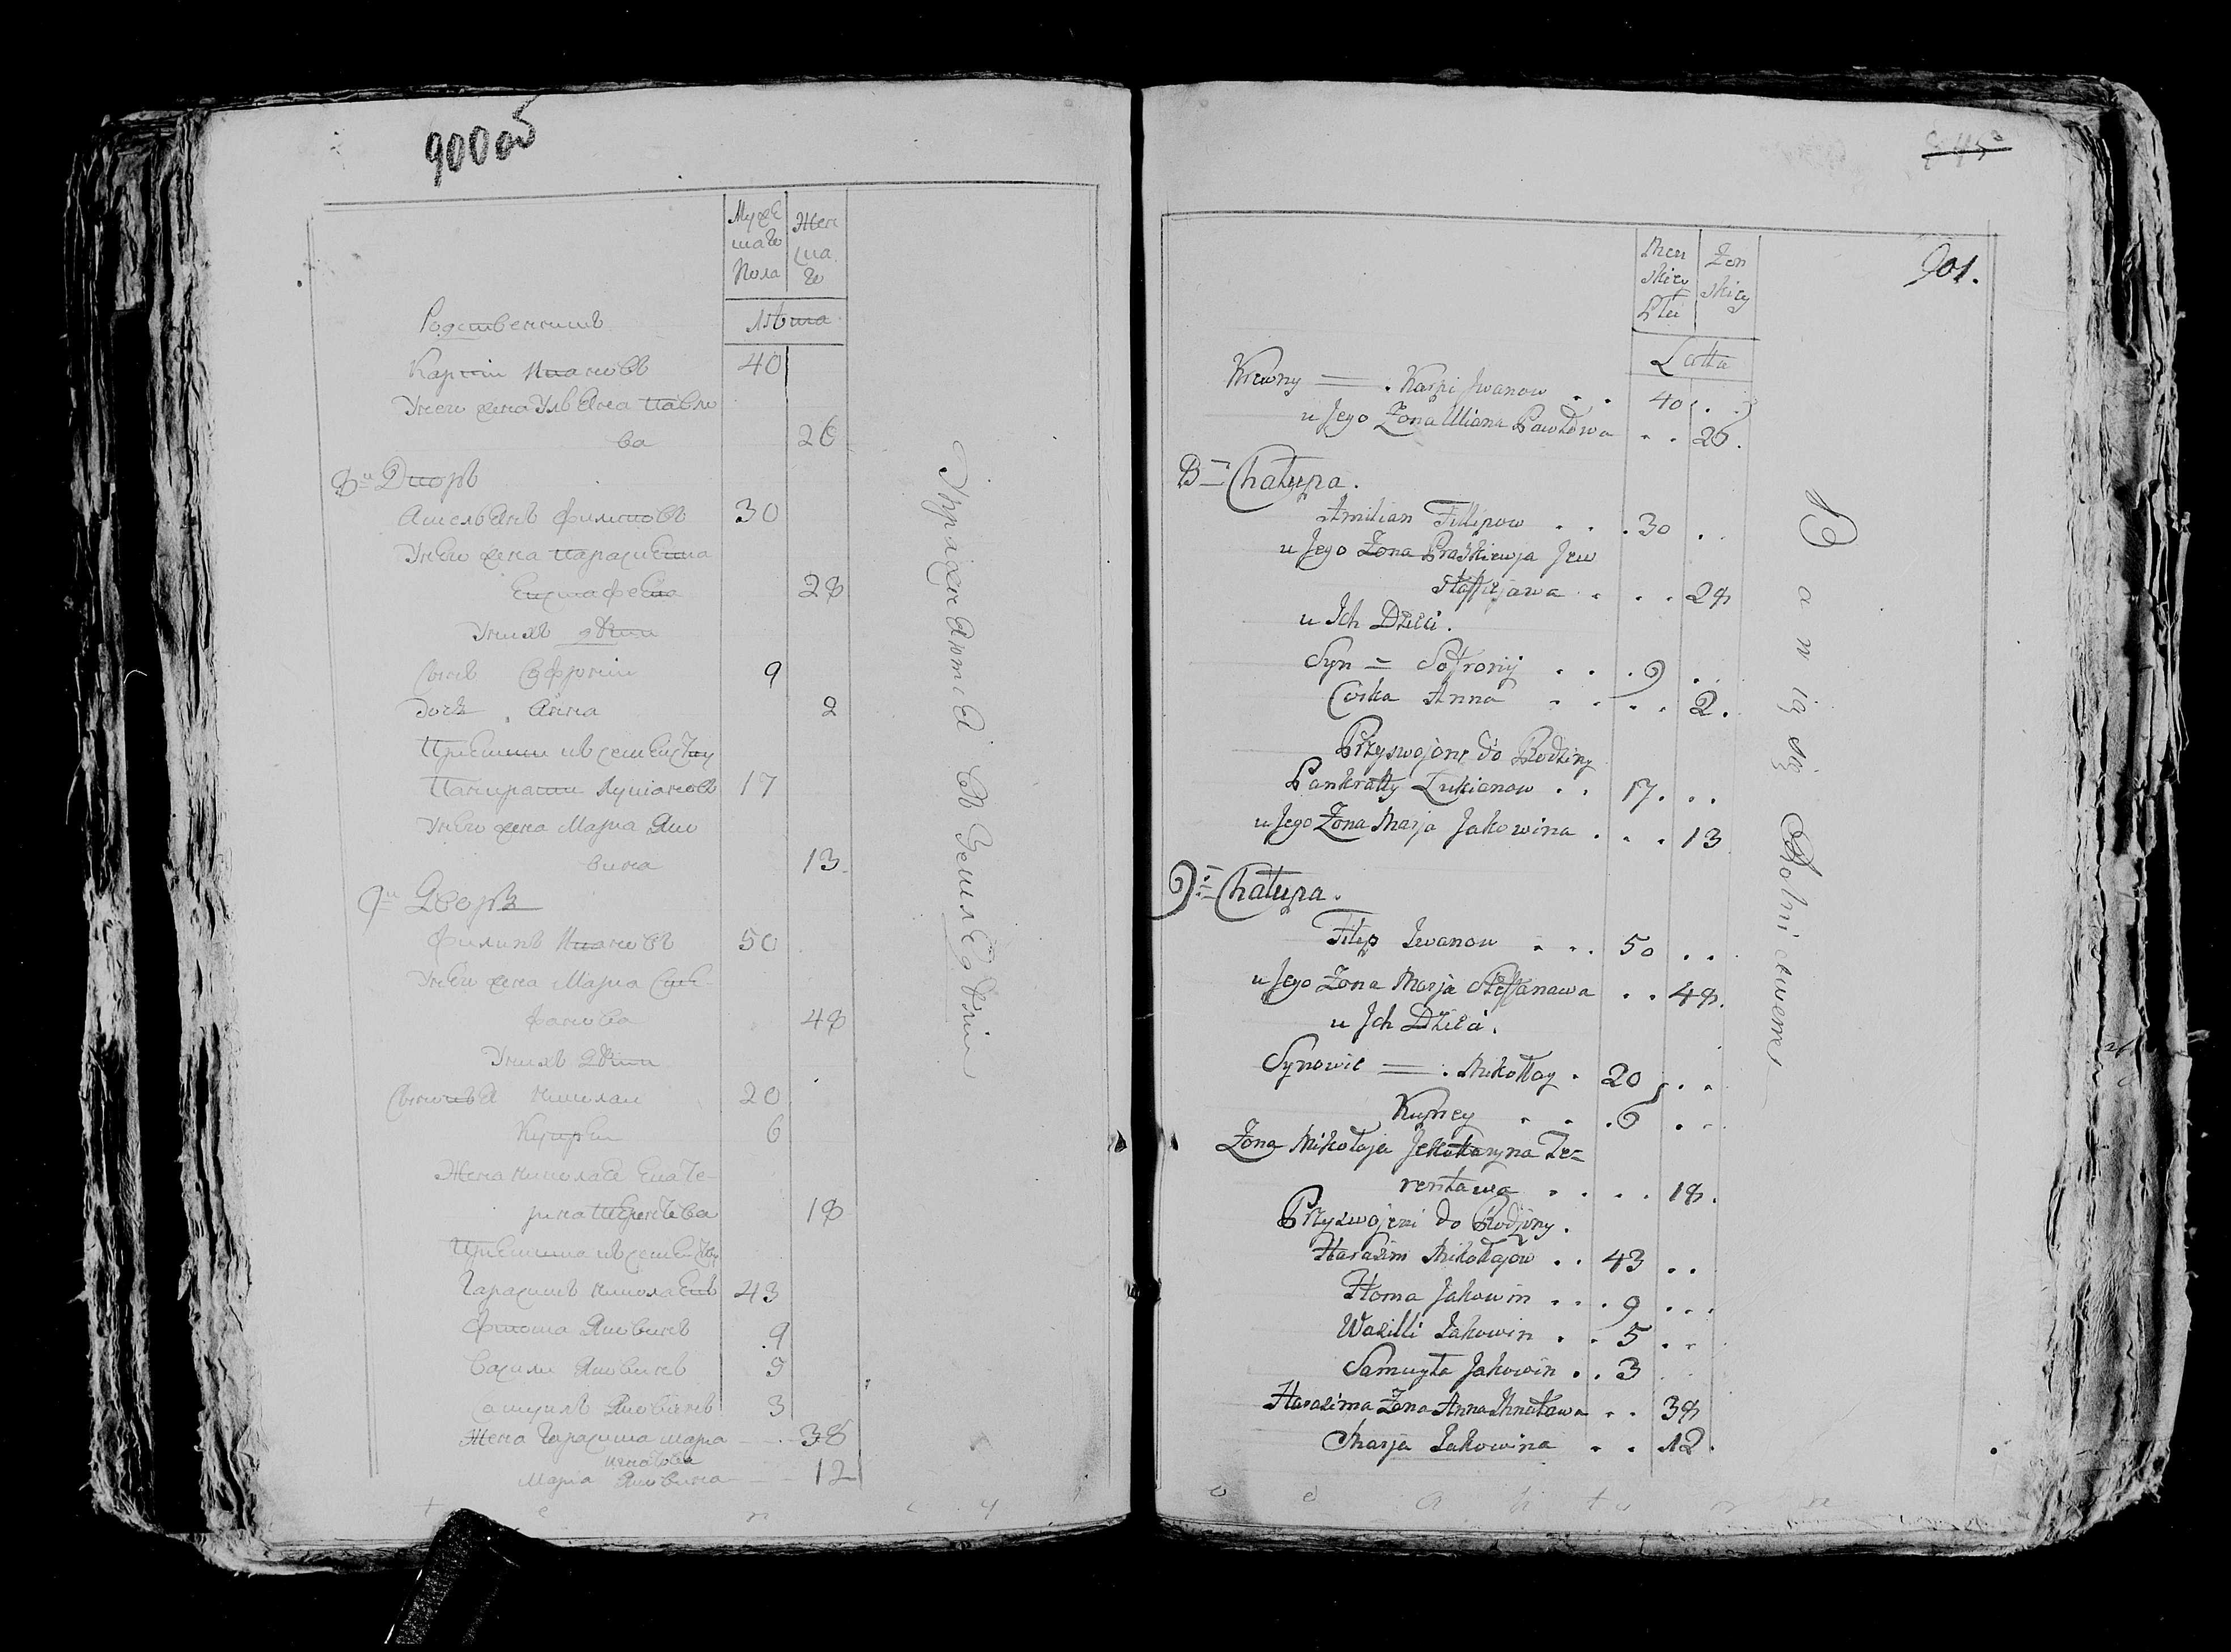 900 об
Мужс
каго
Пола
Жен
ска
го
Лѣта
Родственникъ
Карпъ Ивановъ 40
У него жена Ульяна Павло
ва 26
8й Дворъ
Амельянъ Филиповъ 30
У него жена Параскевия
Евстафева 28
У нихъ дѣти
Сынъ Софроній 9
Дочь Анна 2
Приемыши въ семейству
Панкратий Лукіановъ 17
У него жена Мариа Яко
вина 13
9й Дворъ
Филипъ Ивановъ 50
У него жена Мариа Сте
фанова 48
У нихъ дѣти
Сыновья Николай 20
Куприй 6
Жена Николая Екате-
рина Терентева 18
Герасимъ Николаевъ 43
Фома Яковинъ 9
Василий Яковинъ 5
Самуилъ Яковинъ 3
Жена Герасима Мариа 38
Игнатова
Мария Яковина 12
Упражняются въ Земледѣліи
901.
Mez
skiey
Płci
Zen
skiey
Latta
Krewny = Karpi Jwanow 40
u Jego Zona Uliana Pawłowa 26.
8= Chałupa.
Amilian Fillipow 30
u Jego Zona Praskiewja Jew
staffiejawa 28
u Jch Dzieci.
Syn = Sofroniy 9
Corka Anna 2.
Przyswojone do Rodziny
Pankratty Łukianow 17.
u Jego Zona Marja Jakowina 13
9= Chałupa.
Filip Iwanow 50
u Jego Zona Marja Steffanawa 48.
u Jch Dzieci.
Synowie = Mikołłay 20
Kuprey 6
Zona Mikołaja Jekattaryna Te=
rentawa 18.
Przyswojeni do Rodziny.
Harasim Mikołłajow 43
Homa Jakowin 9
Wasilli Jakowin 5
Samuyła Jakowin 3
Harasima Zona Anna Ihnatawa 38
Marja Jakowina 12.
Bawią się Rolnictwem